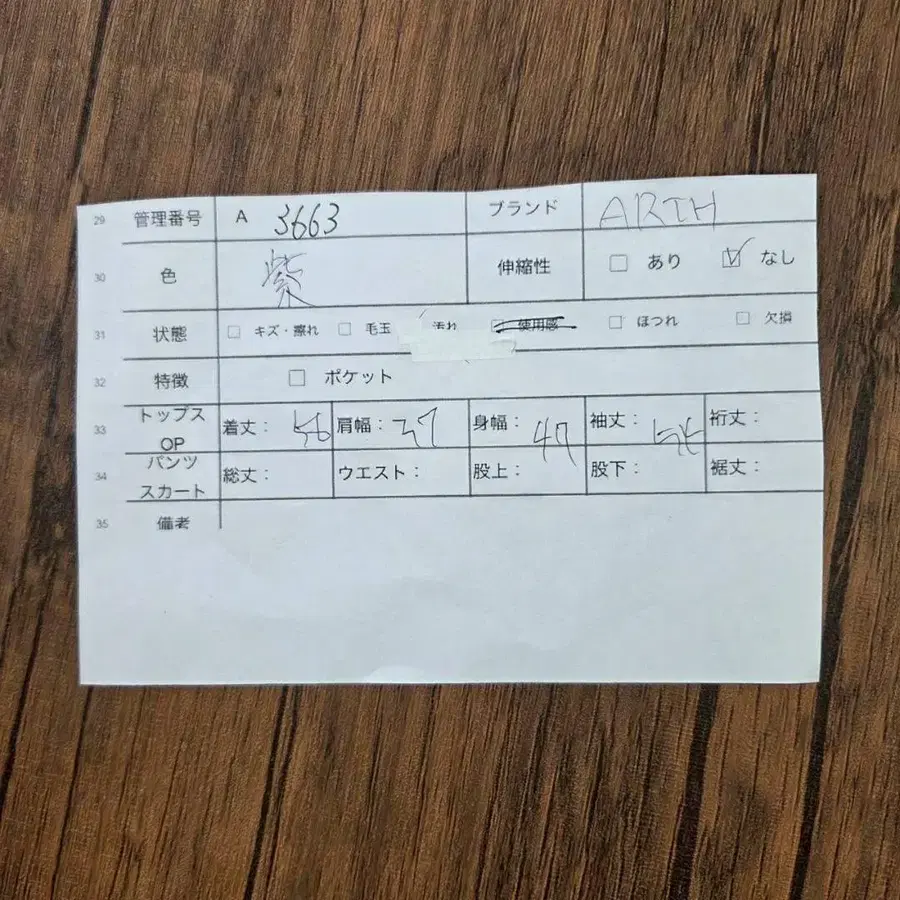 29 管理番号 A 3663 ブランド ARTH
30 色 紫 伸縮性 □ あり ☑ なし
31 状態 □ キズ・擦れ □ 毛玉 汚れ □ 使用感 □ ほつれ □ 欠損
32 特徴 □ ポケット
33 トップス OP 着丈: 56 肩幅: 37 身幅: 47 袖丈: 裄丈:
34 パンツ スカート 総丈: ウエスト: 股上: 股下: 裾丈:
35 備考